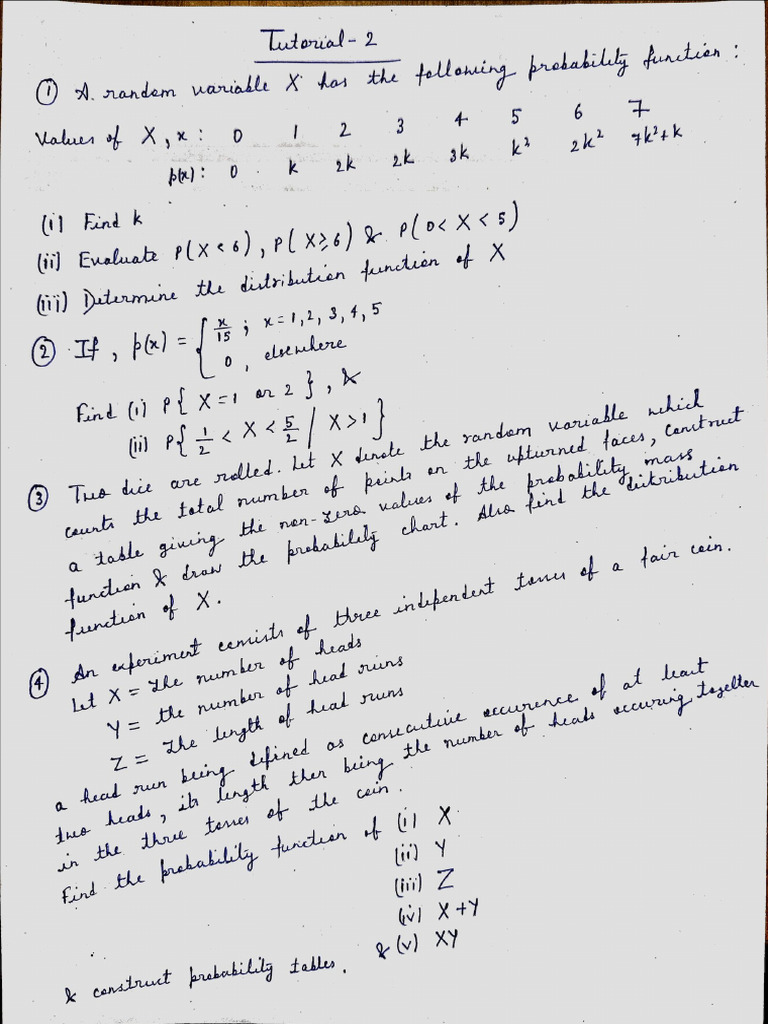 Tutorial-2
① A random variable X has the following probability function :
Values of X, x : 0 1 2 3 4 5 6 7
p(x) : 0 k 2k 2k 3k k² 2k² 7k²+k
(i) Find k
(ii) Evaluate P(X < 6), P(X ≥ 6) & P(0 < X < 5)
(iii) Determine the distribution function of X
② If, p(x) = { x/15 ; x = 1, 2, 3, 4, 5
0, elsewhere
Find (i) P{ X = 1 or 2 }, &
(ii) P{ 1/2 < X < 5/2 / X > 1 }
③ Two dice are rolled. Let X denote the random variable which
counts the total number of points on the upturned faces, construct
a table giving the non-zero values of the probability mass
function & draw the probability chart. Also find the distribution
function of X.
④ An experiment consists of three independent tosses of a fair coin.
Let X = The number of heads
Y = the number of head runs
Z = The length of head runs
a head run being defined as consecutive occurence of at least
two heads, its length then being the number of heads occuring together
in the three tosses of the coin.
Find the probability function of (i) X
(ii) Y
(iii) Z
(iv) X + Y
& (v) XY
& construct probability tables.